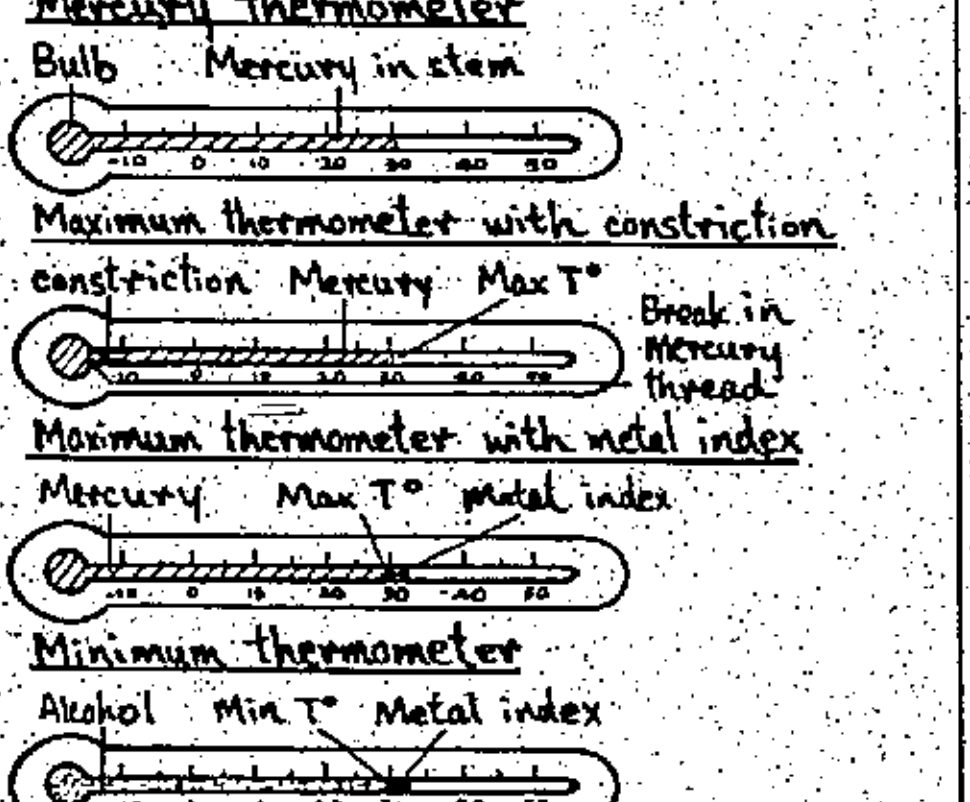 Mercury thermometer
Bulb Mercury in stem
-10 0 10 20 30 40 50
Maximum thermometer with constriction
constriction Mercury Max T°
Break in
Mercury
thread
-10 0 10 20 30 40 50
Maximum thermometer with metal index
Mercury Max T° Metal index
-10 0 10 20 30 40 50
Minimum thermometer
Alcohol Min T° Metal index